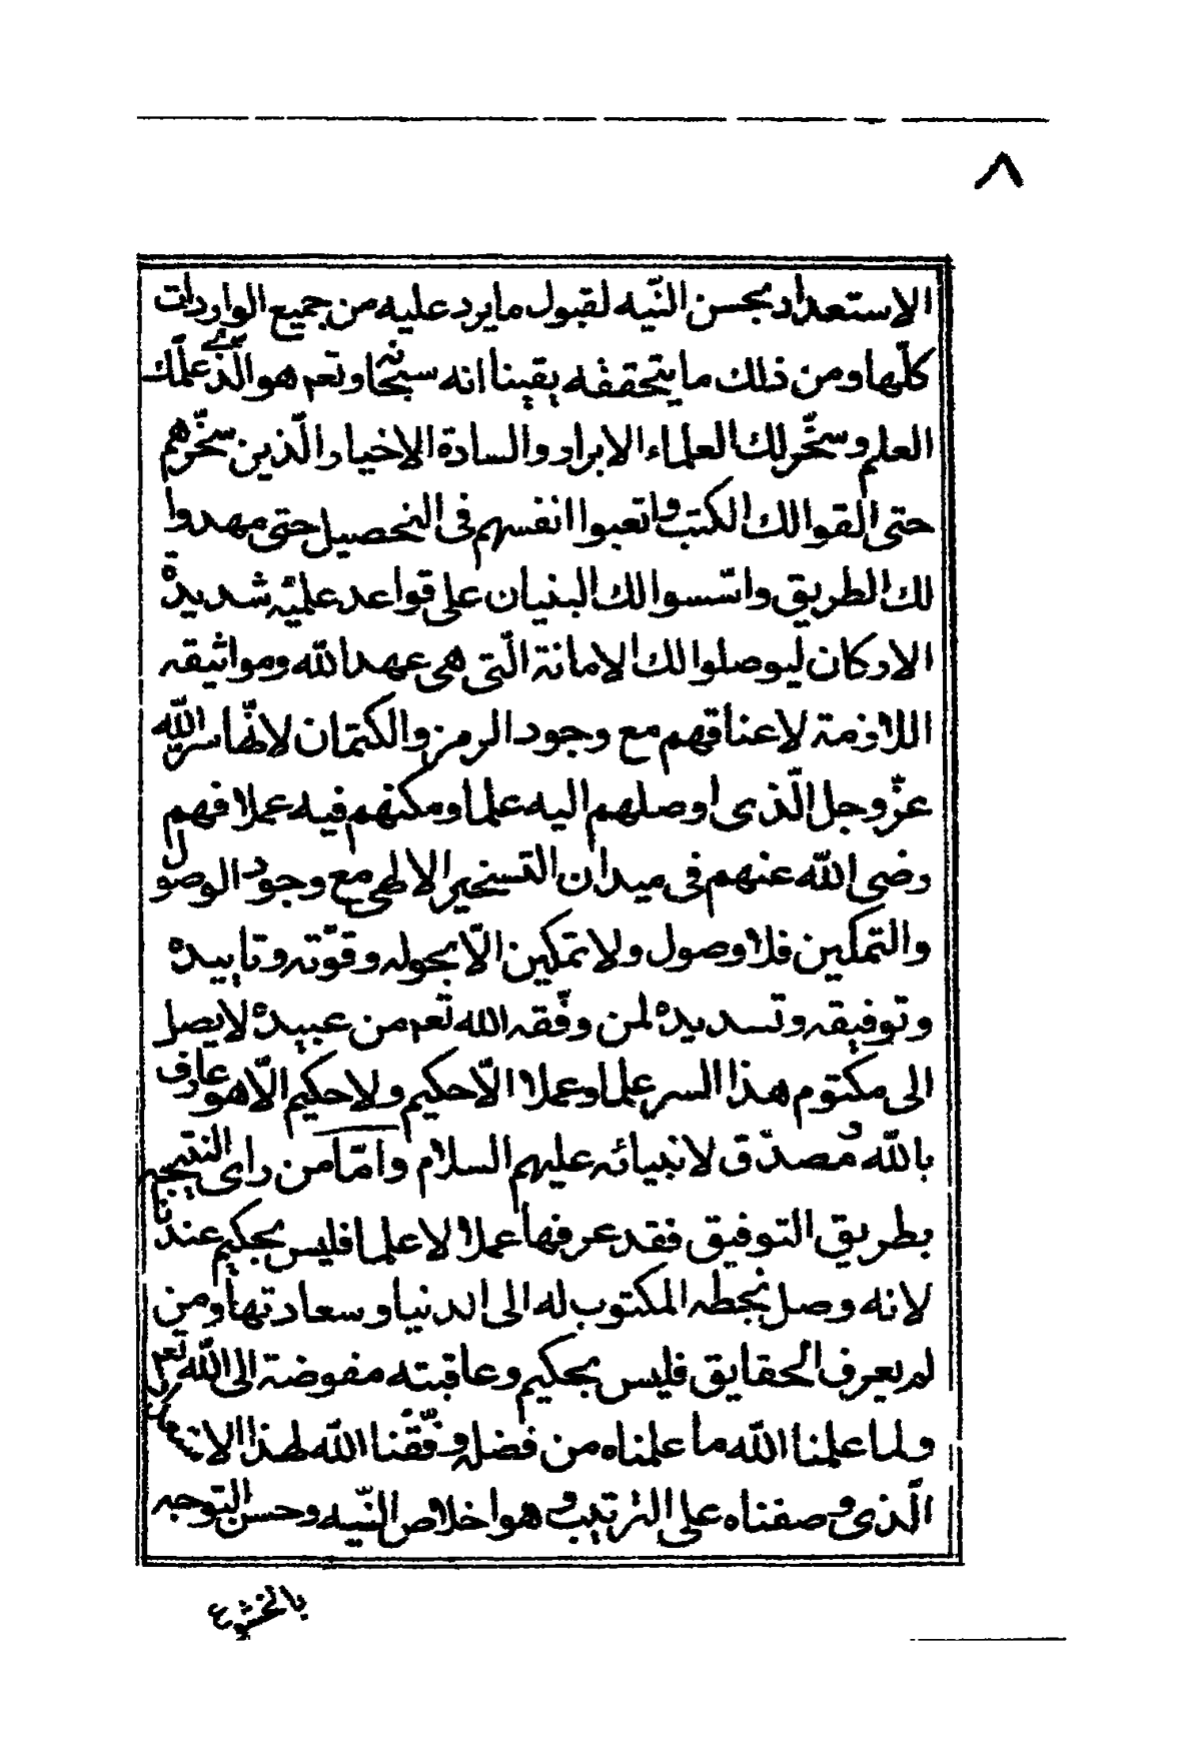 ٨
الاستعداد بحسن النّيه لقبول ما يرد عليه من جميع الواردات
كلّها ومن ذلك ما يتحققه يقينا انه سبحانه وتعم هو الّذي علّمك
العلم وسخّر لك العلماء الابرار والسادة الاخيار الّذين سخّرهم
حتى القوا لك الكتب واتعبوا انفسهم فى التحصيل حتى مهدوا
لك الطريق واسّسوا لك البنيان على قواعد علميّه شديدة
الاركان ليوصلوا لك الامانة الّتى هى عهد الله ومواثيقه
اللازمة لاعناقهم مع وجود الرمز والكتمان لانّها سر الله
عزّ وجل الّذى اوصلهم اليه علما ومكنهم فيه عملا فهم
رضى الله عنهم فى ميدان التسخير الالهى مع وجود الوصول
والتمكين فلا وصول ولا تمكين الّا بحوله وقوّته وتاييده
وتوفيقه وتسديده لمن وفّقه الله تعم من عبيده لا يصل
الى مكتوم هذا السر علما وعملا الّا حكيم ولا حكيم الّا هو عارف
بالله مُصدّق لانبيائه عليهم السلام وامّا من راى النتيجه
بطريق التوفيق فقد عرفها عملا لا علما فليس بحكيم عندنا
لانه وصل بحظه المكتوب له الى الدنيا وسعادتها ومن
لم يعرف الحقايق فليس بحكيم وعاقبته مفوضة الى الله تعم
ولما علمنا الله ما علمناه من فضله وفّقنا الله لهذا
الّذى وصفناه على الترتيب وهو اخلاص النّيه وحسن التوجه
بالخشوع